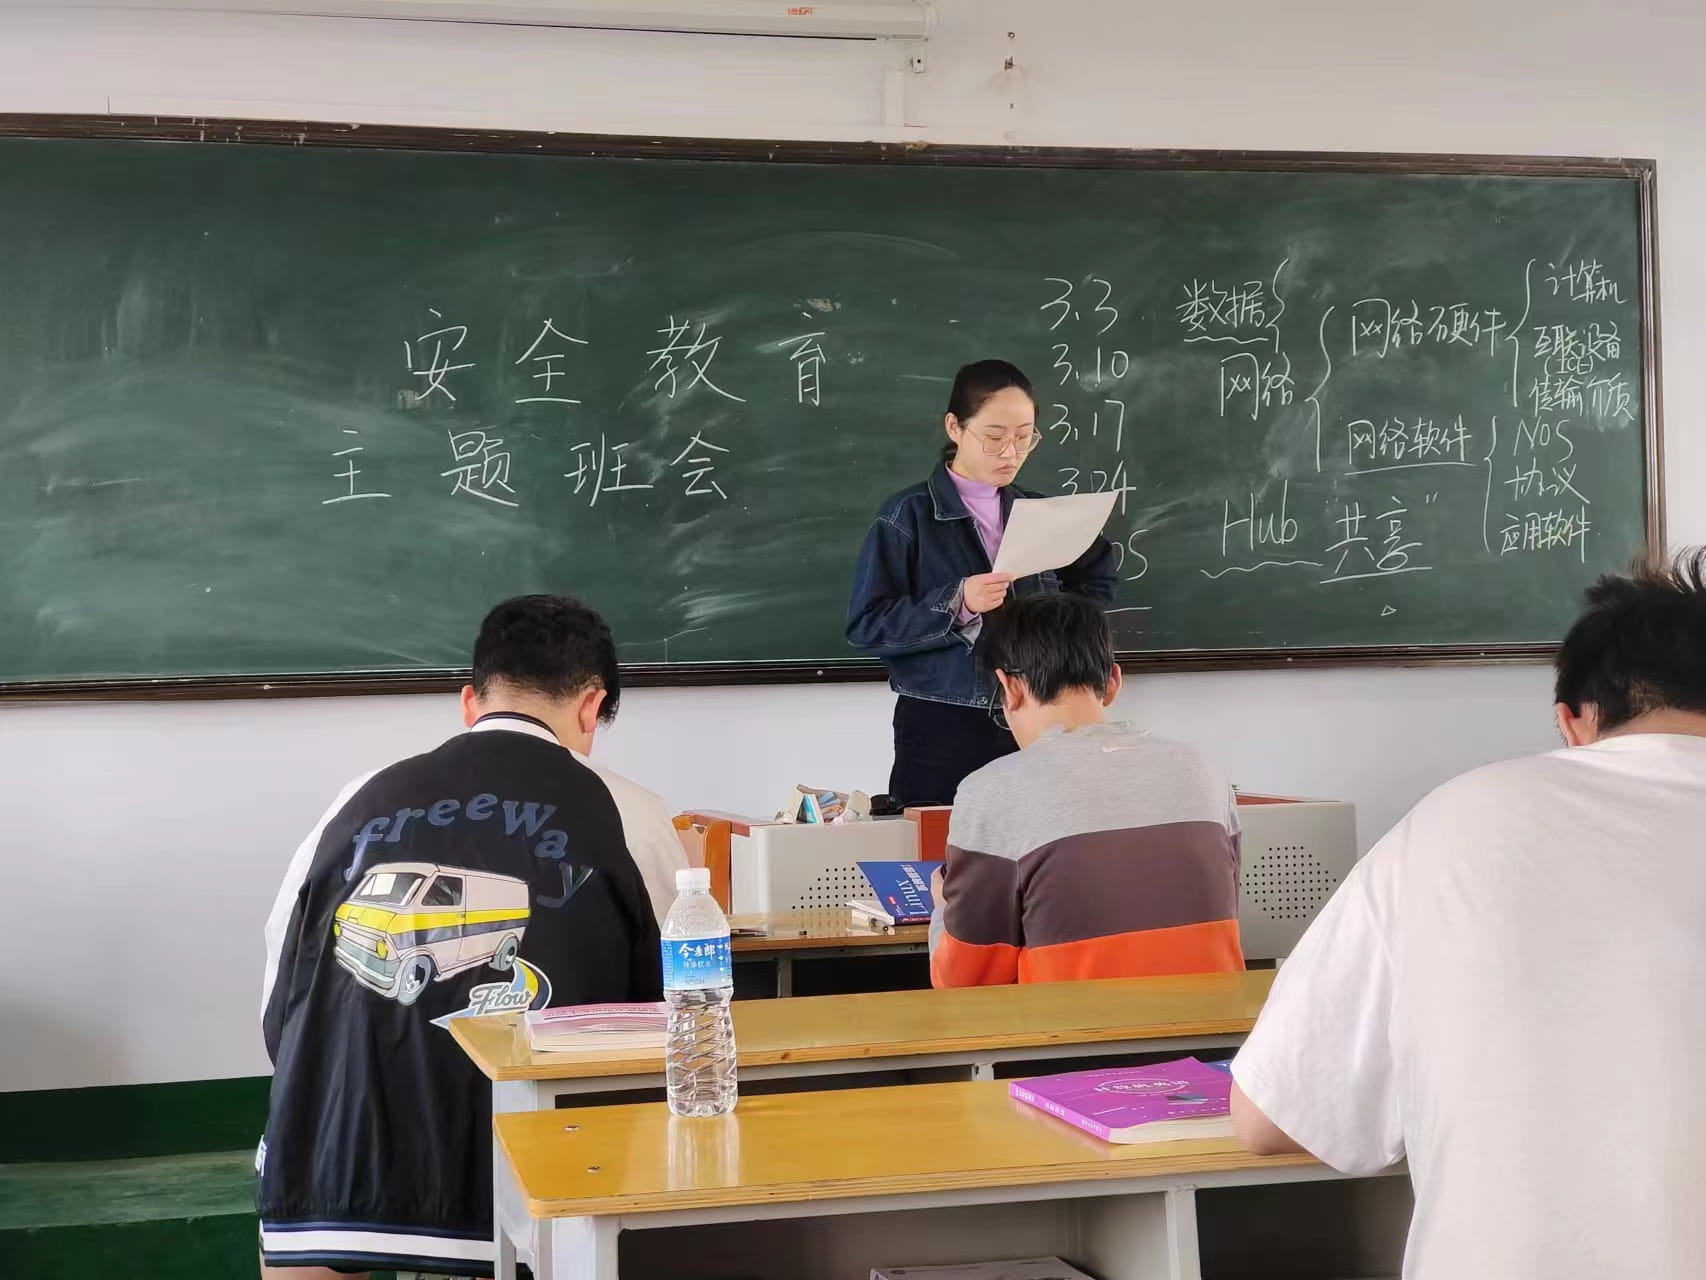 安全教育
主题班会
3.3
3.10
3.17
3.24
数据
网络
网络硬件
计算机
互联设备
传输介质
网络软件
NOS
协议
应用软件
Hub "共享"
freeway
Flow
Linux
今麦郎